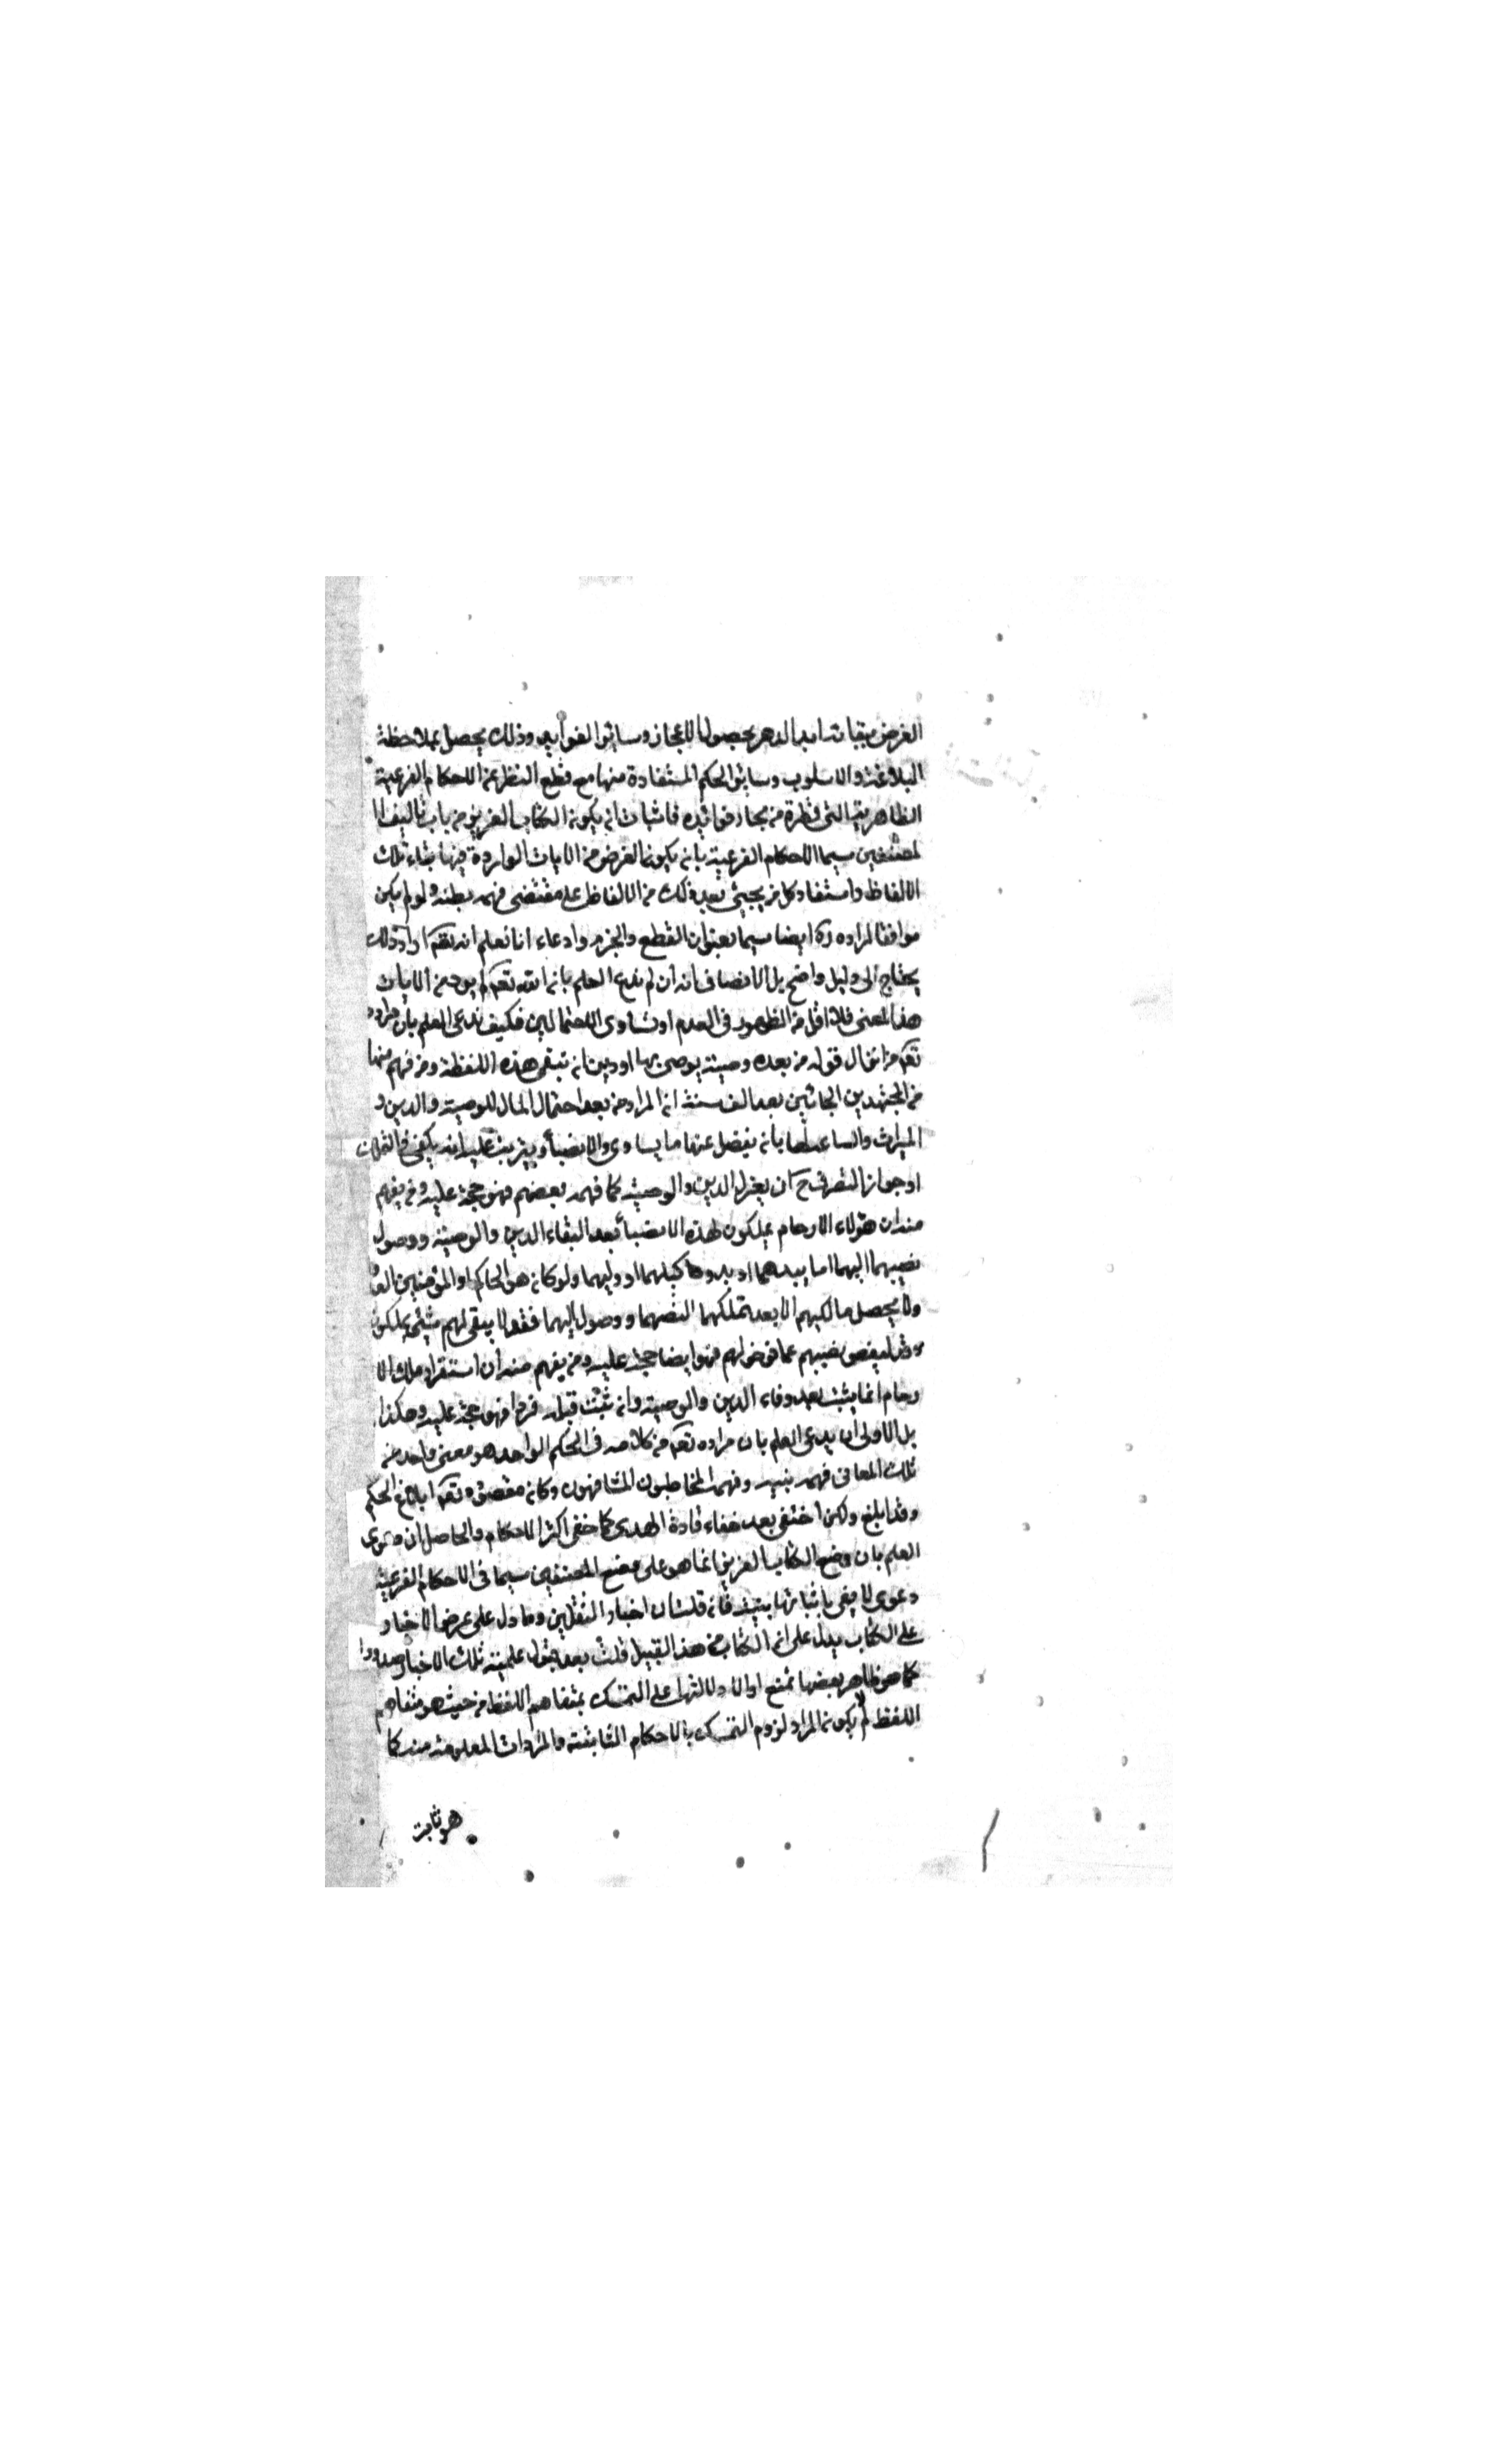 الغرض بقائها ابد الدهر بحصول الاعجاز وسائر الفوايد وذلك يحصل بملاحظة
البلاغة والاسلوب وسائر الحكم المستفادة منها مع قطع النظر عن الاحكام الفرعية
الظاهرية التي قطرة من بحار فوائده فاثبات ان يكون الكتاب العزيز من باب تأليف ا
لمصنفين سيما الاحكام الفرعية بان يكون الغرض من الايات الواردة فيها بقاء تلك
الالفاظ واستفاد كل من يجيئ بعد ذلك من الالفاظ على مقتضى فهمه بظنه ولو لم يكن
موافقا لمراده ره ايضا سيما بعنوان القطع والجزم وادعاء انا نعلم انه تعم اراد ذلك
يحتاج الى دليل واضح بل الانصاف انه ان لم ندع العلم بان الله تعم لم يرد من الايات
هذا المعنى فلا اقل من الظهور في العدم او تساوى الاحتمالين فكيف ندعى العلم بان مراده
تعم من انزال قوله من بعد وصية يوصى بها او دين ان تبقى هذه اللفظة ومن فهم منها
من المجتهدين الجائين بعد الف سنة ان المراد من بعد احتمال المال للوصية والدين و
الميراث والساعة لها بان يفضل عنها ما يساوى الانصبا ويترتب عليه انه يكفى في التملك
او جواز التصرف ح ان يعزل الدين والوصية كما فهمه بعضهم فهو حجة عليه ومن يفهم
منه ان هؤلاء الارحام يملكون لهذه الانصبا بعد ايفاء الدين والوصية ووصول
نصيبهما اليهما اما بيدهما او بيد وكيلهما او وليهما ولو كان هو الحاكم او المؤمنين العدول
ولا يحصل مالكيهم الا بعد تملكهما لنصيبهما ووصول اليهما فقد لا يبقى لهم شيئ يملكون
وقد ينقص نصيبهم عما فرض لهم فهو ايضا حجة عليه ومن يفهم منه ان استقرار ملك الا
رحام انما يثبت بعد وفاء الدين والوصية وان ثبتت قبله فهو حجة عليه وهكذا
بل الاولى ان يدعى العلم بان مراده تعم من كلامه في الحكم الواحد هو معنى واحد من
تلك المعانى فهمه نبيه وفهمه المخاطبون المشافهون وكان مقصوده تعم ابلاغ الحكم
وقد ابلغ ولكن اختفى بعد خفاء قادة الهدى كما خفى اكثر الاحكام والحاصل ان دعوى
العلم بان وضع الكتاب العزيز انما هو على وضع المصنفين سيما في الاحكام الفرعية
دعوى لا يفى باثباتها بينة فان قلت ان اخبار الثقلين وما دل على عرض الاخبار
على الكتاب يدل على ان الكتاب من هذا القبيل قلت بعد قبول علمية تلك الاخبار صدورا
كما هو ظاهر بعضها نمنع اولا دلالتها على التمسك بمتفاهم اللفظ من حيث هو متفاهم
اللفظ لم لا يكون المراد لزوم التمسك بالاحكام الثابتة والمرادات المعلومة منه كما
هو ثابت